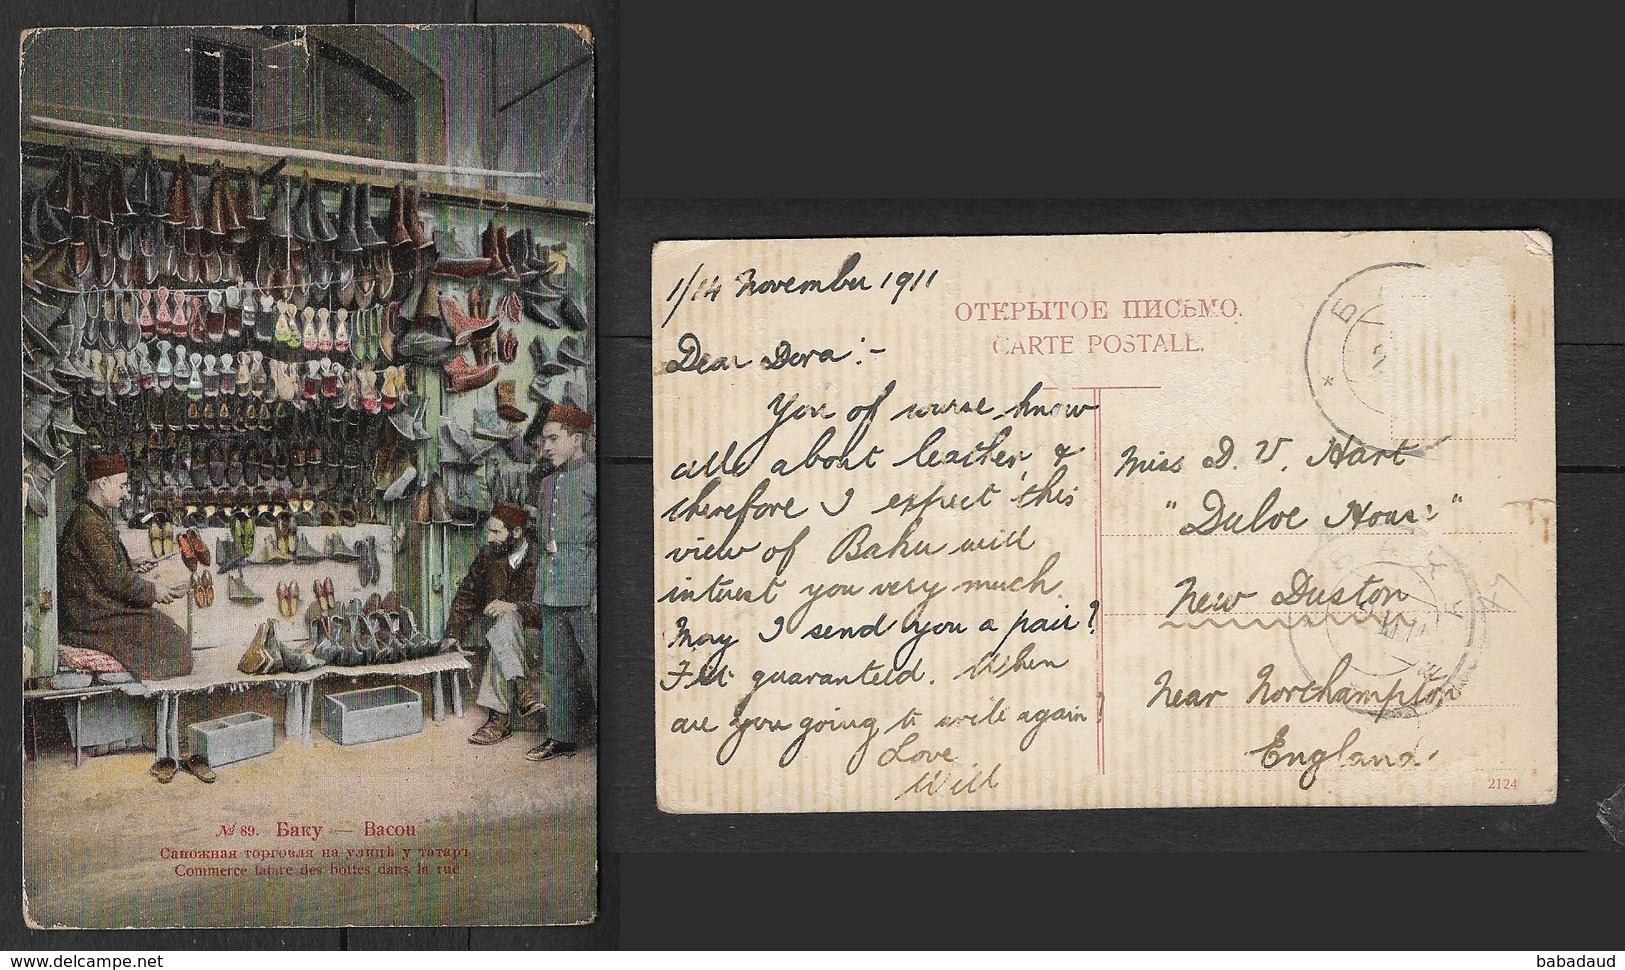 № 89. Баку — Bacou
Сапожная торговля на улицѣ у татаръ
Commerce tatare des bottes dans la rue
1/14 November 1911
ОТКРЫТОЕ ПИСЬМО.
CARTE POSTALE.
Dear Dora :-
You of course know
all about leather, &
therefore I expect this
view of Baku will
interest you very much.
May I send you a pair?
Fit guaranteed. When
are you going to write again?
Love
Will
Miss D. V. Hart
"Duloe House"
New Duston
Near Northampton
England.
2124
delcampe.net
babadaud